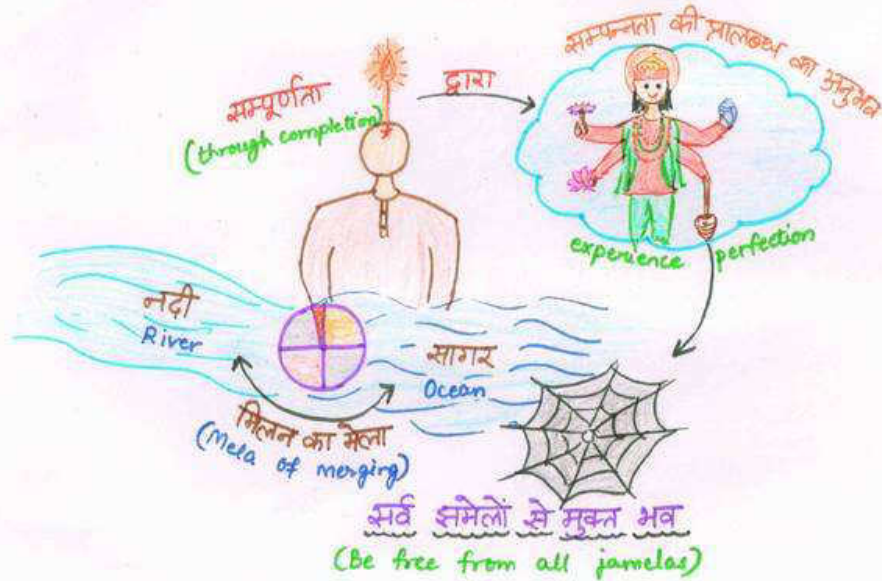 सम्पूर्णता
(through completion)
द्वारा
सम्पन्नता की प्रालब्ध का अनुभव
experience perfection
नदी
River
सागर
Ocean
मिलन का मेला
(Mela of merging)
सर्व झमेलों से मुक्त भव
(Be free from all jamelas)